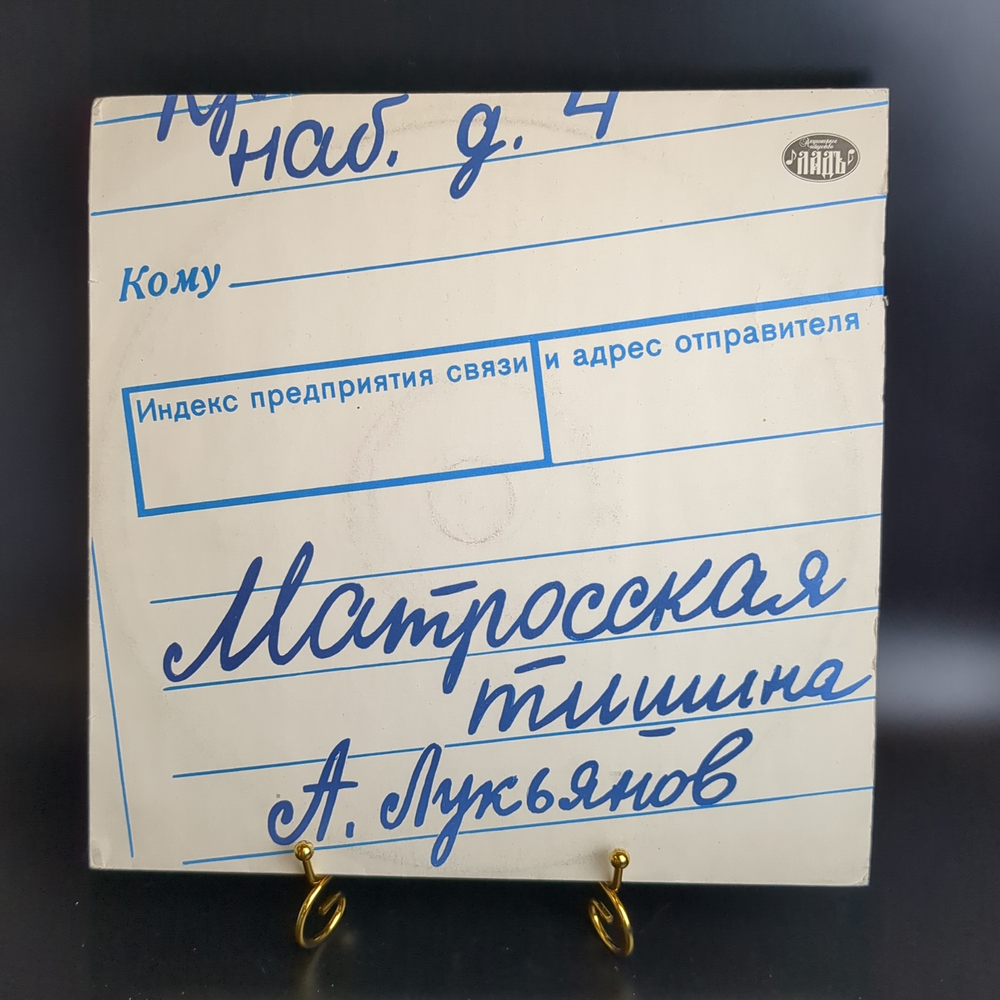 наб. д. 4
ЛАДЪ
Кому
Индекс предприятия связи и адрес отправителя
Матросская
тишина
А. Лукьянов